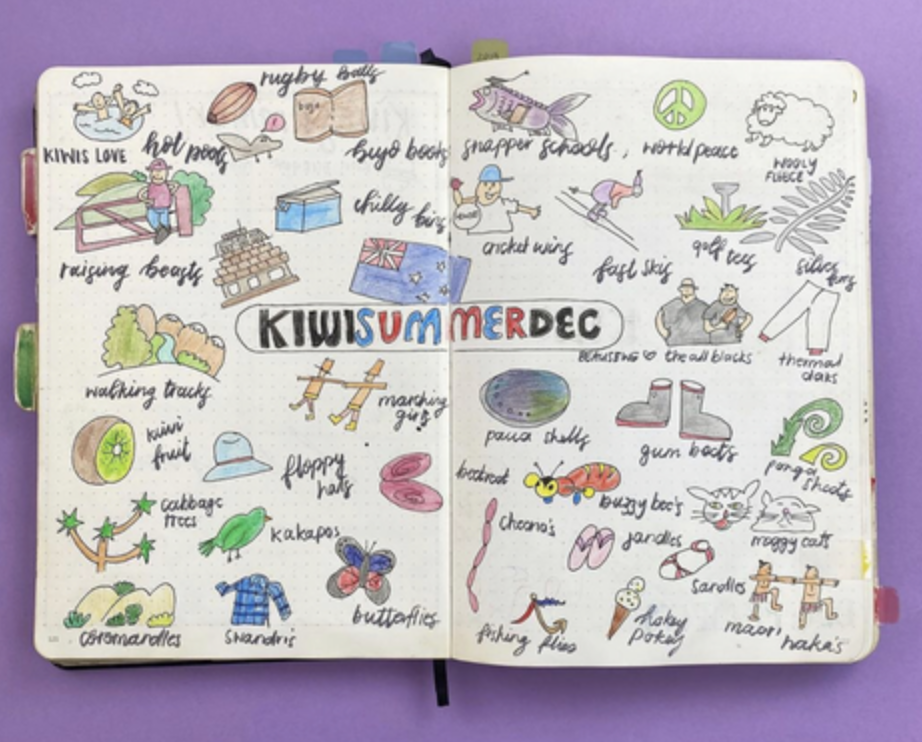 rugby balls
bujo
KIWIS LOVE
hot pools
bujo books
chilly bins
raising beasts
walking tracks
marching girls
kiwi fruit
floppy hats
cabbage trees
kakapos
coromandles
swandri's
butterflies
KIWISUMMERDEC
snapper schools,
world peace
wooly
FLEECE
cricket wins
fast skis
golf tees
silver ferns
the all blacks
thermal
daks
paua shells
gum boots
ponga
shoots
beetroot
buzzy bee's
cheerio's
jandles
moggy cats
sandles
fishing flies
hokey
pokey
maori
haka's